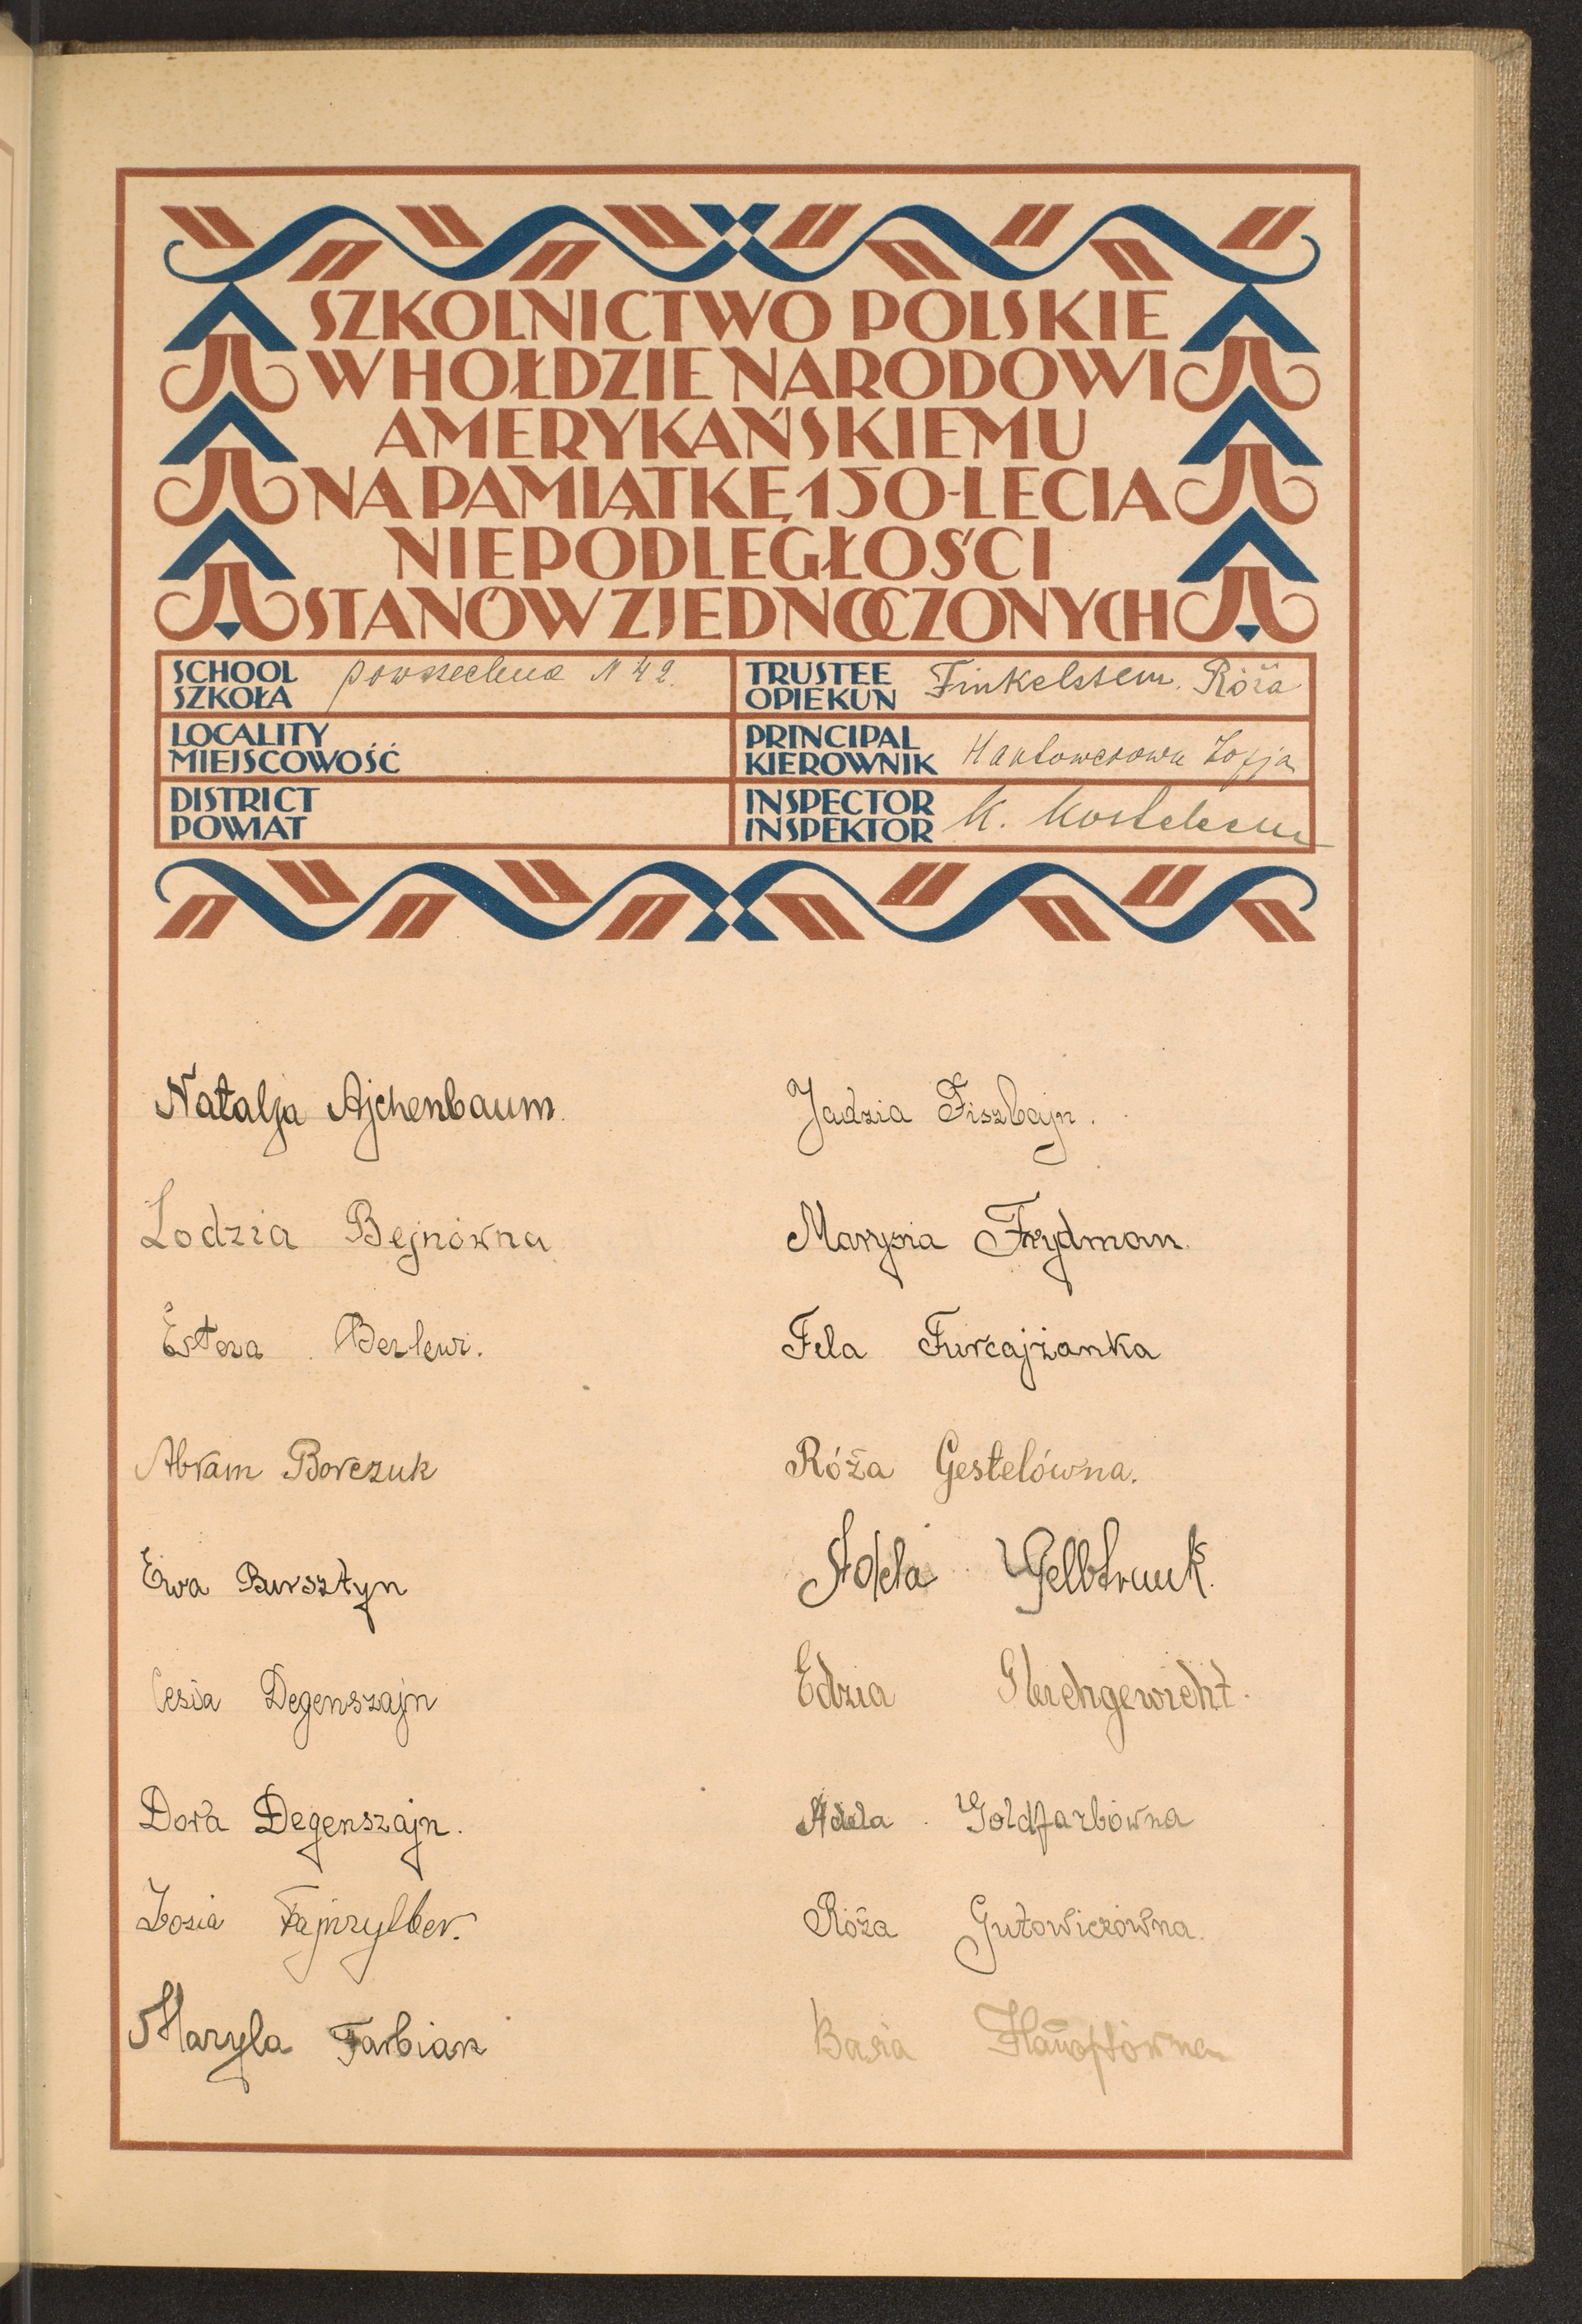 SZKOLNICTWO POLSKIE
W HOŁDZIE NARODOWI
AMERYKAŃSKIEMU
NA PAMIĄTKĘ 150-LECIA
NIEPODLEGŁOŚCI
STANÓW ZJEDNOCZONYCH
SCHOOL
SZKOŁA
powszechna N 42.
TRUSTEE
OPIEKUN
Finkelstein. Róża
LOCALITY
MIEJSCOWOŚĆ
PRINCIPAL
KIEROWNIK
Zofja
DISTRICT
POWIAT
INSPECTOR
INSPEKTOR
K.
Natalja Ajchenbaum.
Lodzia Bejnówna
Estera Berlewi.
Abram Borczuk
Ewa Bursztyn
Cesia Degenszajn
Dora Degenszajn.
Zosia Fajnzylber.
Maryla Farbiarz
Jadzia Fiszbajn.
Marysia Frydman.
Fela Furcajżanka
Róża Gestelówna.
Adela Gelbtrunk.
Edzia Glichgewicht.
Adela Goldfarbówna
Róża Gutowiczówna.
Basia